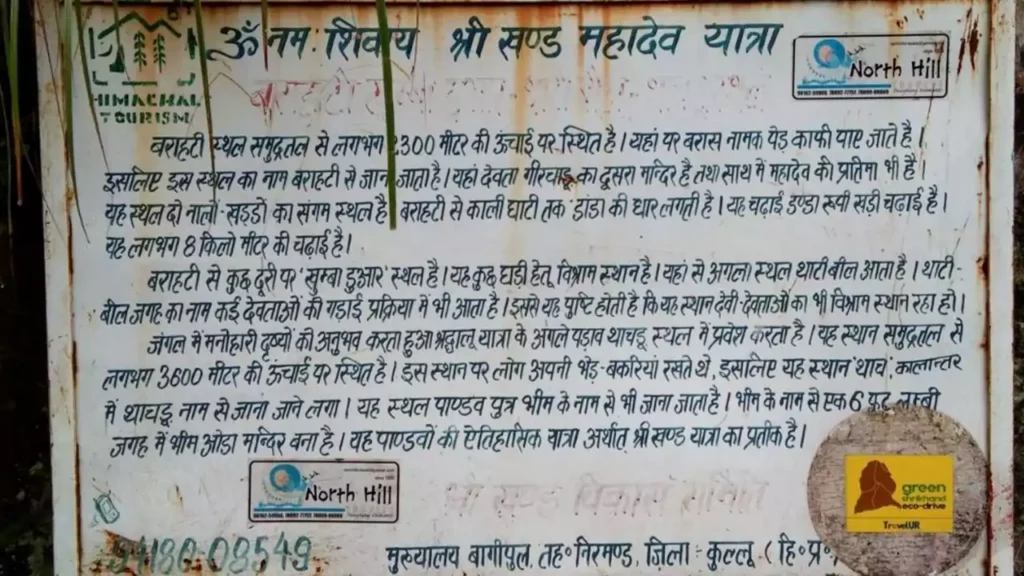 ॐ नम: शिवाय श्री खण्ड महादेव यात्रा
HIMACHAL
TOURISM
North Hill
बराहटी स्थल समुद्रतल से लगभग 2300 मीटर की ऊंचाई पर स्थित है। यहां पर बरास नामक पेड़ काफी पाए जाते है।
इसलिए इस स्थल का नाम बराहटी से जाना जाता है। यहां देवता गीरचाडू का दुसरा मन्दिर है तथा साथ में महादेव की प्रतिमा भी है।
यह स्थल दो नालों-खड्डो का संगम स्थल है। बराहटी से काली घाटी तक डांडा की धार लगती है। यह चढ़ाई डण्डा रूपी खड़ी चढ़ाई है।
यह लगभग 8 किलो मीटर की चढ़ाई है।
बराहटी से कुछ दूरी पर 'खुम्बा डुआर' स्थल है। यह कुछ घड़ी हेतू विश्राम स्थान है। यहां से अगला स्थल थाटी बील आता है। थाटी-
बील जगह का नाम कई देवताओं की गड़ाई प्रक्रिया में भी आता है। इससे यह पुष्टि होती है कि यह स्थान देवी-देवताओं का भी विश्राम स्थान रहा हो।
जंगल में मनोहारी दृष्यों की अनुभव करता हुआ श्रद्धालू यात्रा के अगले पड़ाव थाचडू स्थल में प्रवेश करता है। यह स्थान समुद्रतल से
लगभग 3600 मीटर की ऊंचाई पर स्थित है। इस स्थान पर लोग अपनी भेड़-बकरियां रखते थे, इसलिए यह स्थान थाच, कालान्तर
में थाचडू नाम से जाना जाने लगा। यह स्थल पाण्डव पुत्र भीम के नाम से भी जाना जाता है। भीम के नाम से एक 6 फुट लम्बी
जगह में भीम ओडा मन्दिर बना है। यह पाण्डवों की ऐतिहासिक यात्रा अर्थात् श्री खण्ड यात्रा का प्रतीक है।
North Hill
श्री खण्ड विकास समिति
green
shrikhand
eco-drive
TravelUR
94180-08549
मुख्यालय बागीपुल, तह० निरमण्ड, ज़िला - कुल्लू (हि० प्र०